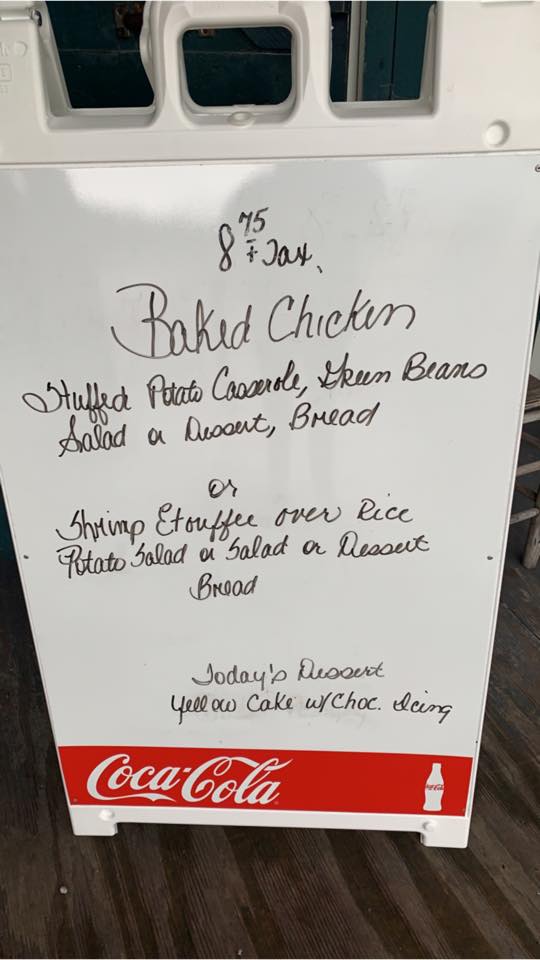 8 75 + Tax.
Baked Chicken
Stuffed Potato Casserole, Green Beans
Salad or Dessert, Bread
or
Shrimp Etouffee over Rice
Potato Salad or Salad or Dessert
Bread
Today's Dessert
Yellow Cake w/Choc. Icing
Coca-Cola